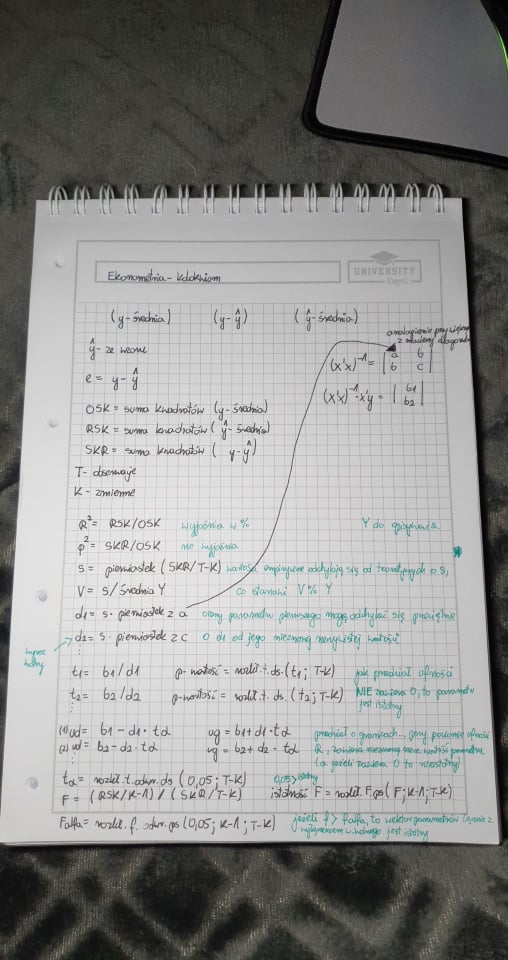 Ekonometria - kolokwium
UNIVERSITY
(y-średnia) (y-ŷ) (ŷ-średnia)
analogicznie przy większej
z macierzy diagonalnej
ŷ - ze wzoru
(x'x)⁻¹ = | a b |
| b c |
e = y-ŷ
(x'x)⁻¹·x'y = | b1 |
| b2 |
OSK = suma kwadratów (y-średnia)
RSK = suma kwadratów (ŷ-średnia)
SKR = suma kwadratów (y-ŷ)
T - obserwacje
K - zmienne
R² = RSK/OSK wyjaśnia w % Y do opisywacza
φ² = SKR/OSK nie wyjaśnia
S = pierwiastek (SKR/T-K) wartości empiryczne odchylają się od teoretycznych o S,
V = S/średnia Y co stanowi V% Y
d1 = s · pierwiastek z a oceny parametru pierwszego mogą odchylać się przeciętnie
d2 = s · pierwiastek z c o d1 od jego nieznanej rzeczywistej wartości
t1 = b1/d1 p-wartość = rozkł.t.ds.(t1; T-K) jak przedział ufności
t2 = b2/d2 p-wartość = rozkł.t.ds.(t2; T-K) NIE zawiera 0, to parametr
jest istotny
(1) ud = b1 - d1 · tα ug = b1 + d1 · tα
(2) ud = b2 - d2 · tα ug = b2 + d2 · tα
przedział o granicach... przy poziomie ufności
(a jeżeli zawiera 0 to nieistotny)
tα = rozkł.t.odwr.ds (0,05; T-K) 0,05> istotny
F = (RSK/K-1) / (SKR/T-K) istotność F = rozkł.F.ps (F; K-1; T-K)
Falfa = rozkł.f.odwr.ps (0,05; K-1; T-K) jeżeli F > Falfa, to wektor parametrów łącznie z
wyłączeniem w.wolnego jest istotny